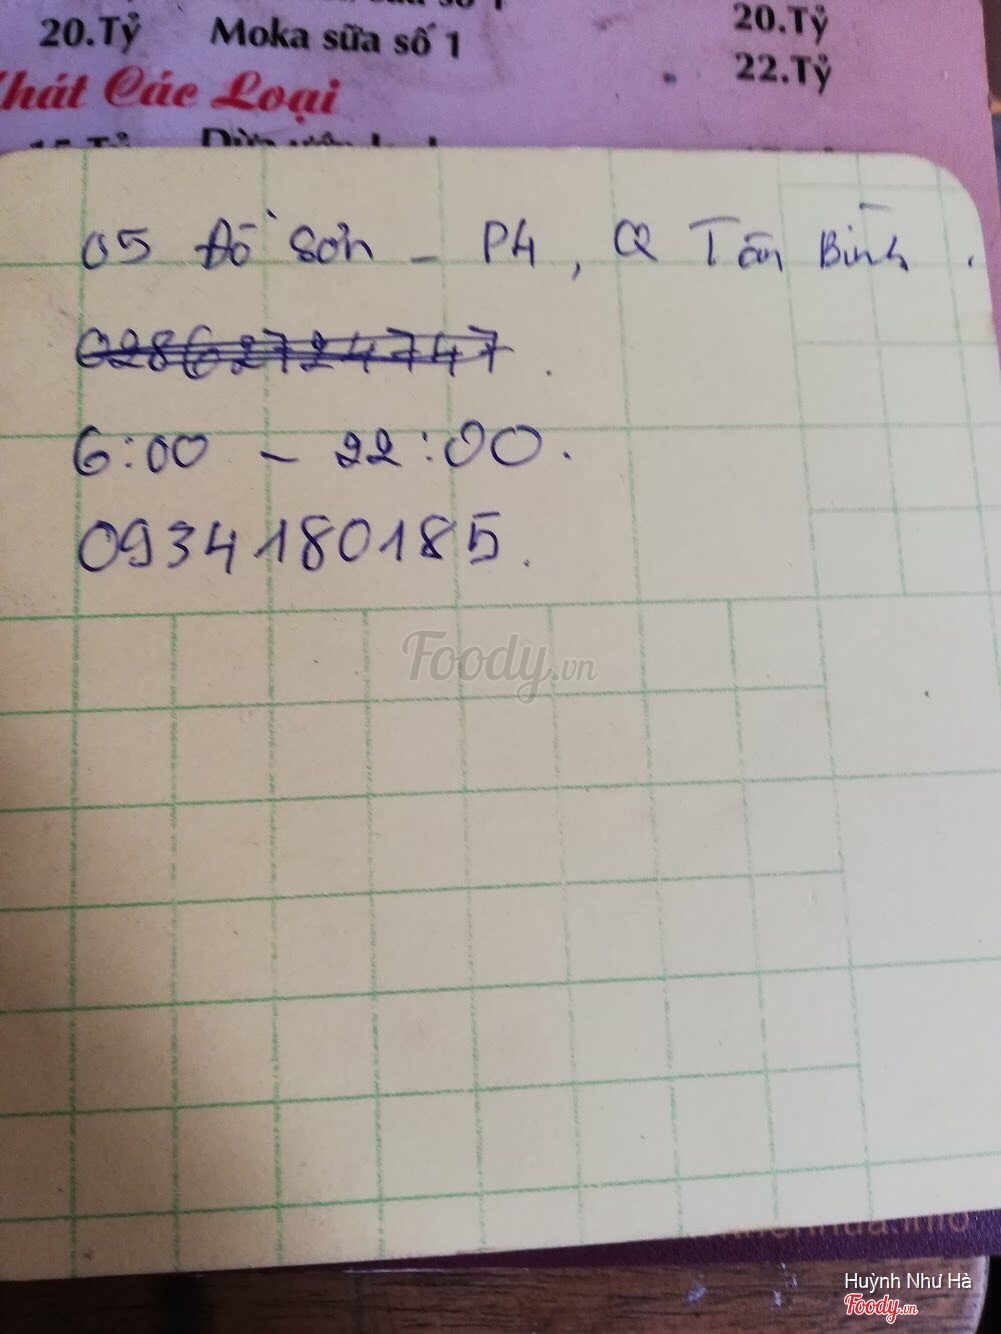 20.Tỷ Moka sữa số 1 20.Tỷ
22.Tỷ
Khát Các Loại
05 Đồ Sơn - P4, Q Tân Bình.
02862724747.
6:00 - 22:00.
0934180185.
Foody.vn
Huỳnh Như Hà
Foody.vn